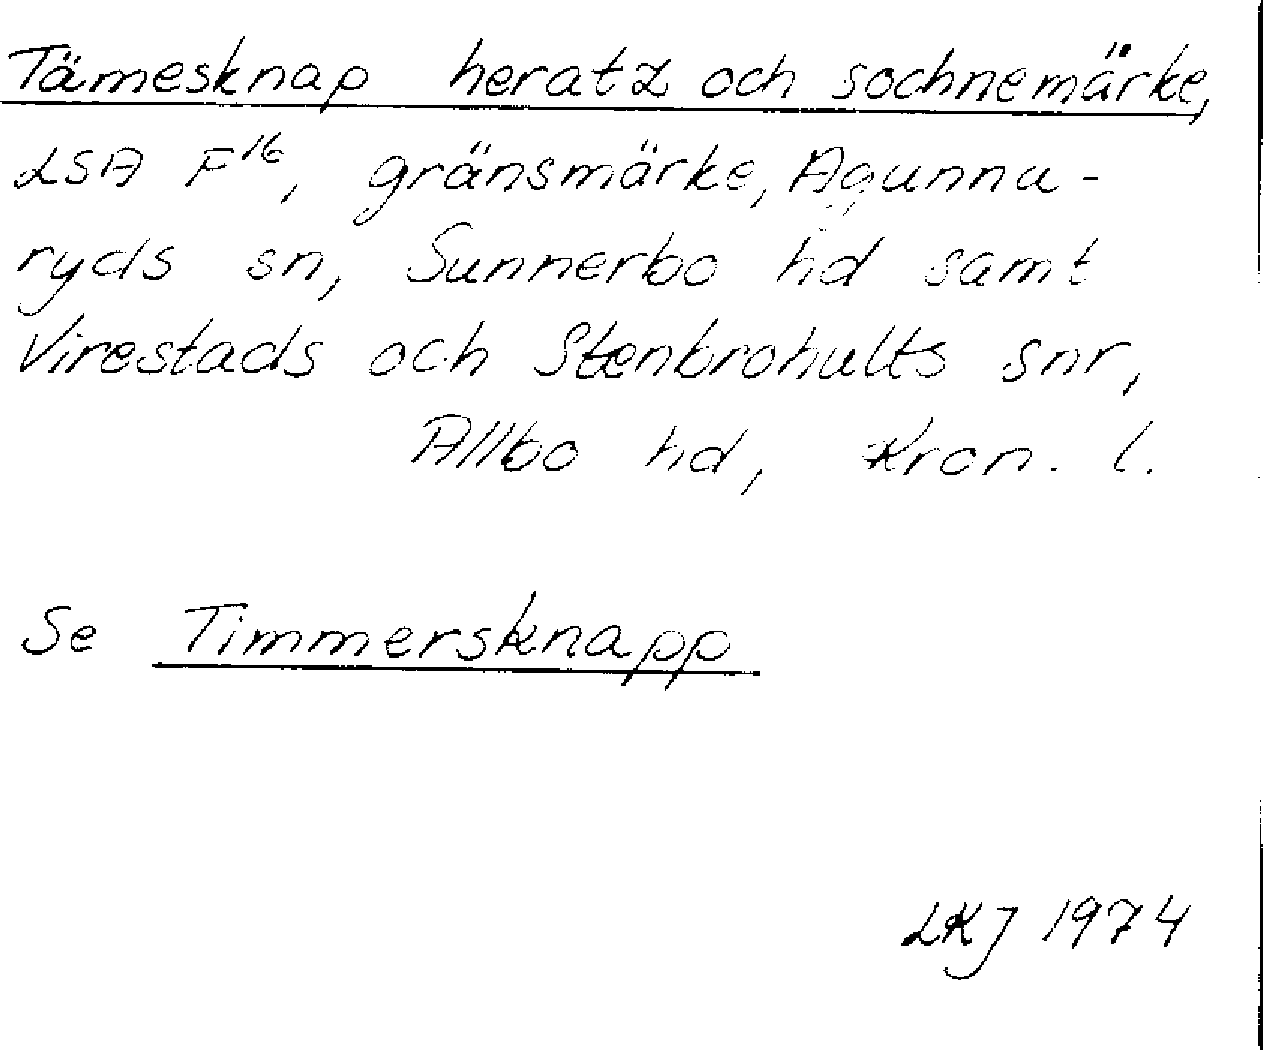 Tämesknap heratz och sochnemärke,
LSA F16, gränsmärke, Agunna-
ryds sn, Sunnerbo hd samt
Virestads och Stenbrohults snr,
Allbo hd, Kron. l.
Se Timmersknapp
LKJ 1974